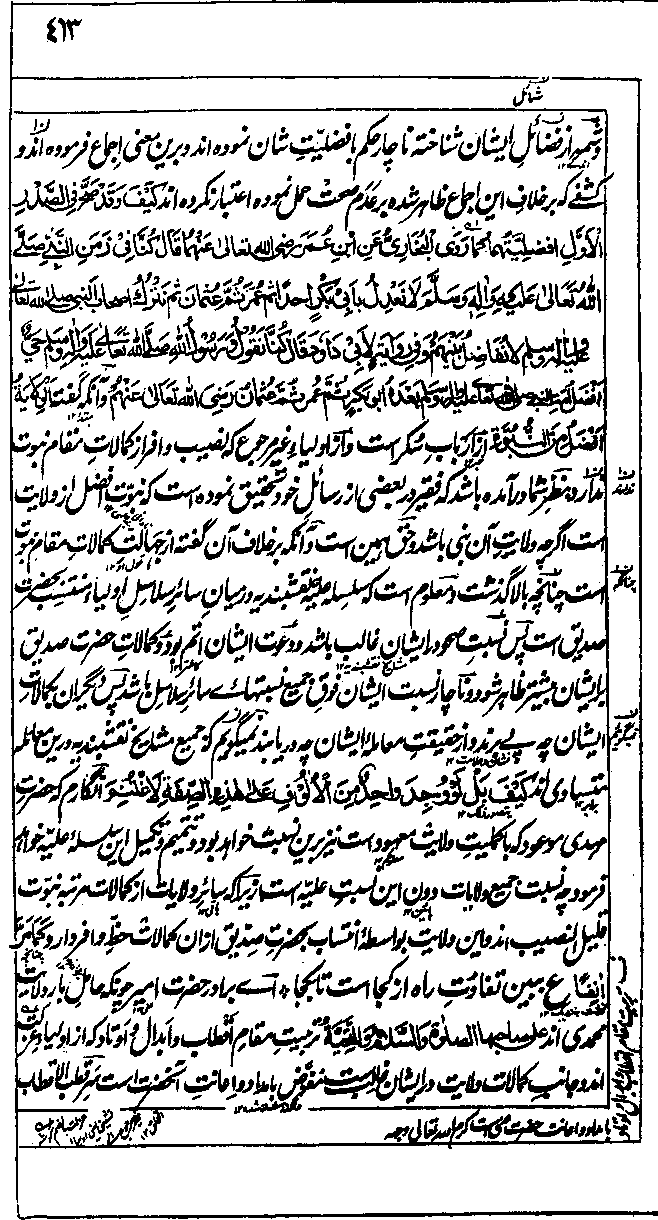 ٤١٣
شمائل
وشمهٔ از فضائل ایشان شناخته ناچار حکم بافضلیت شان نموده اند و برین معنی اجماع فرموده اند و
کشفے که بر خلاف این اجماع ظاهر شده بر عدم صحت حمل نموده اعتبار نکرده اند کَیْفَ وَقَدْ صَحَّ فِی الصَّدْرِ
الْاَوَّلِ اَفْضَلِیَّتُهُمَا کَمَا رَوَی الْبُخَارِیُّ عَنِ ابْنِ عُمَرَ رضی الله تعالیٰ عَنْهُمَا قَالَ کُنَّا فِی زَمَنِ النَّبِیِّ صَلَّے
اللهُ تَعَالٰی عَلَیْهِ وَاٰلِهٖ وَسَلَّمَ لَا نَعْدِلُ بِاَبِی بَکْرٍ اَحَدًا ثُمَّ عُمَرَ ثُمَّ عُثْمَانَ ثُمَّ نَتْرُكُ اَصْحَابَ النَّبِی صلی الله تعالیٰ
علیه واٰله وسلم لَا نُفَاضِلُ بَیْنَهُمْ وَفِی رِوَایَةٍ لِاَبِی دَاوٗدَ قَالَ کُنَّا نَقُوْلُ وَرَسُوْلُ اللهِ صَلَّی اللهُ تَعَالٰے عَلَیْهِ وَاٰلِهٖ وَسَلَّمَ حَیٌّ
اَفْضَلُ اُمَّةِ النبی صلی الله تعالیٰ علیه واٰله وسلم بَعْدَهٗ اَبُو بَکْرٍ ثُمَّ عُمَرُ ثُمَّ عُثْمَانُ رَضِیَ اللهُ تَعَالٰی عَنْهُمْ وآنکه گفته اَلْوِلَایَةُ
اَفْضَلُ مِنَ النُّبُوَّةِ از ارباب سُکر است و از اولیاءِ غیر مرجوع که نصیب وافر از کمالاتِ مقام نبوت
ندارد بنظر شما در آمده باشد که فقیر در بعضی از رسائل خود تحقیق نموده است که نبوّت افضل از ولایت
است اگرچه ولایتِ آن نبی باشد و حق همین است و آنکه بر خلاف آن گفته از جهالت کمالات مقام نبوت
است چنانچه بالا گذشت و معلوم است که سلسله علیه نقشبندیه در میان سائر سلاسلِ اولیا منتسب بحضرت
صدیق است پس نسبت صحو در ایشان غالب باشد و دعوت ایشان اتم بود و کمالات حضرت صدیق
بر ایشان بیشتر ظاهر شود و ناچار نسبت ایشان فوقِ جمیع نسبتهائے سائر سلاسل باشد پس دیگران بکمالات
ایشان چه پے برند و از حقیقت معاملهٔ ایشان چه دریابند نمیگویم که جمیع مشائخ نقشبندیه درین معامله
متساوی اند کَیْفَ بَلْ لَوْ وُجِدَ وَاحِدٌ مِنَ الْاُلُوْفِ عَلٰی هٰذِهِ الصِّفَةِ لَاغْتُنِمَ انگارم که حضرت
مهدی موعود که باکملیتِ ولایت معهود است نیز برین نسبت خواهد بود و تتمیم و تکمیل این سلسلهٔ علیه خواهد
فرمود چه نسبت جمیع ولایات دونِ این نسبتِ علیه است زیراکه سائر ولایات از کمالات مرتبه نبوّت
قلیل النصیب اند و این ولایت بواسطهٔ انتساب بحضرت صدیق ازان کمالات حظّ وافر دارد کَمَا مَرَّ
اٰنِفًا ع ببین تفاوت راه از کجا است تا بکجا * اے برادر حضرت امیر چونکه حامل بار ولایت
محمدی اند علی صاحبها الصلوة والسلام والتحیة تربیت مقام اقطاب و ابدال و اوتاد که از اولیاء عزلت
اند و جانبِ کمالات ولایت در ایشان غالب است مفوّض بامداد و اعانتِ آنحضرت است سر قطب الاقطاب
ف تربیت مقام اقطاب و ابدال و اوتاد
با مداد و اعانت حضرت امیر است کرم الله تعالی وجهه